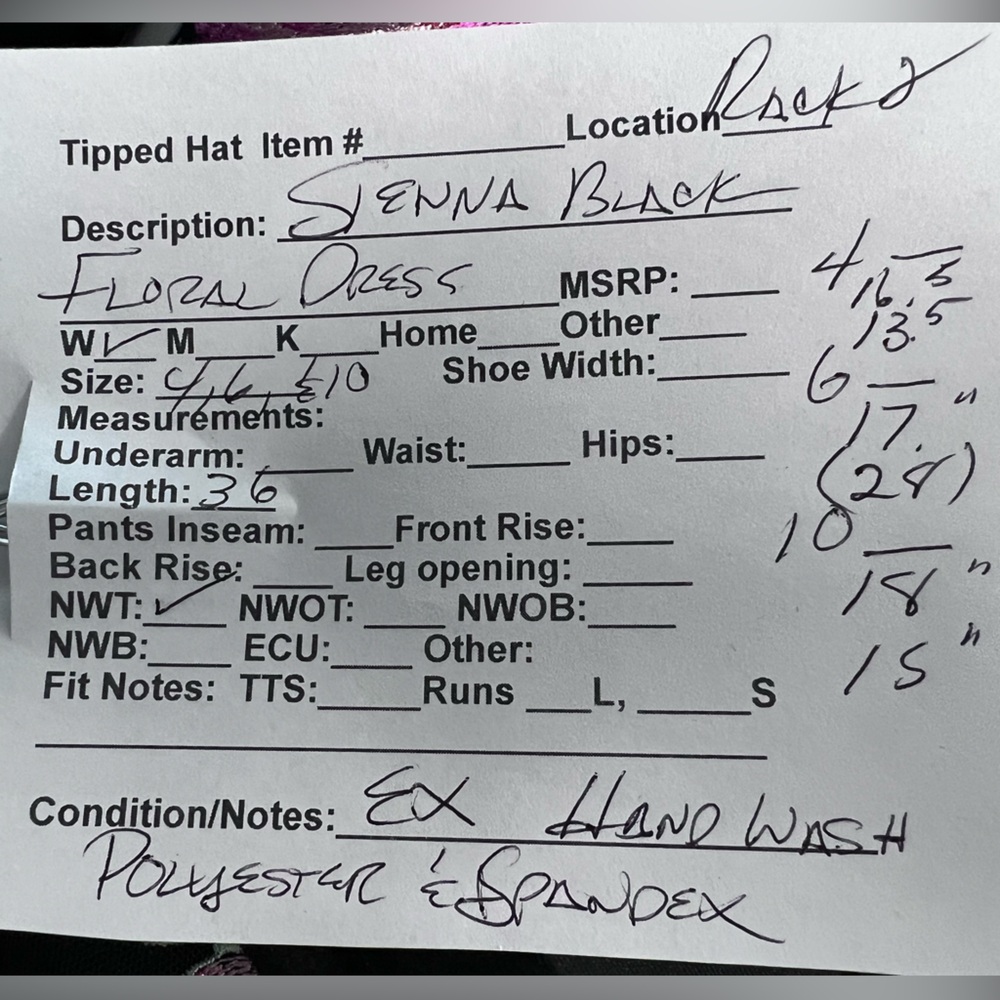 Tipped Hat Item # Location Rack 2
Description: SIENNA BLACK
FLORAL DRESS MSRP:
W ✓ M K Home Other
Size: 4, 6, & 10 Shoe Width:
Measurements:
Underarm: Waist: Hips:
Length: 36
Pants Inseam: Front Rise:
Back Rise: Leg opening:
NWT: ✓ NWOT: NWOB:
NWB: ECU: Other:
Fit Notes: TTS: Runs L, S
Condition/Notes: EX HAND WASH
POLYESTER & SPANDEX
4
16.5
13.5
6
17."
(28)
10
18"
15"